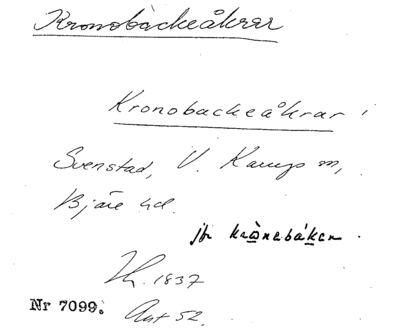 Kronobackeåkrar
Kronobackeåkrar i
Svenstad, V. Karups sn,
Bjäre hd.
jfr krònebáken.
1837
Nr 7099. Akt 52.